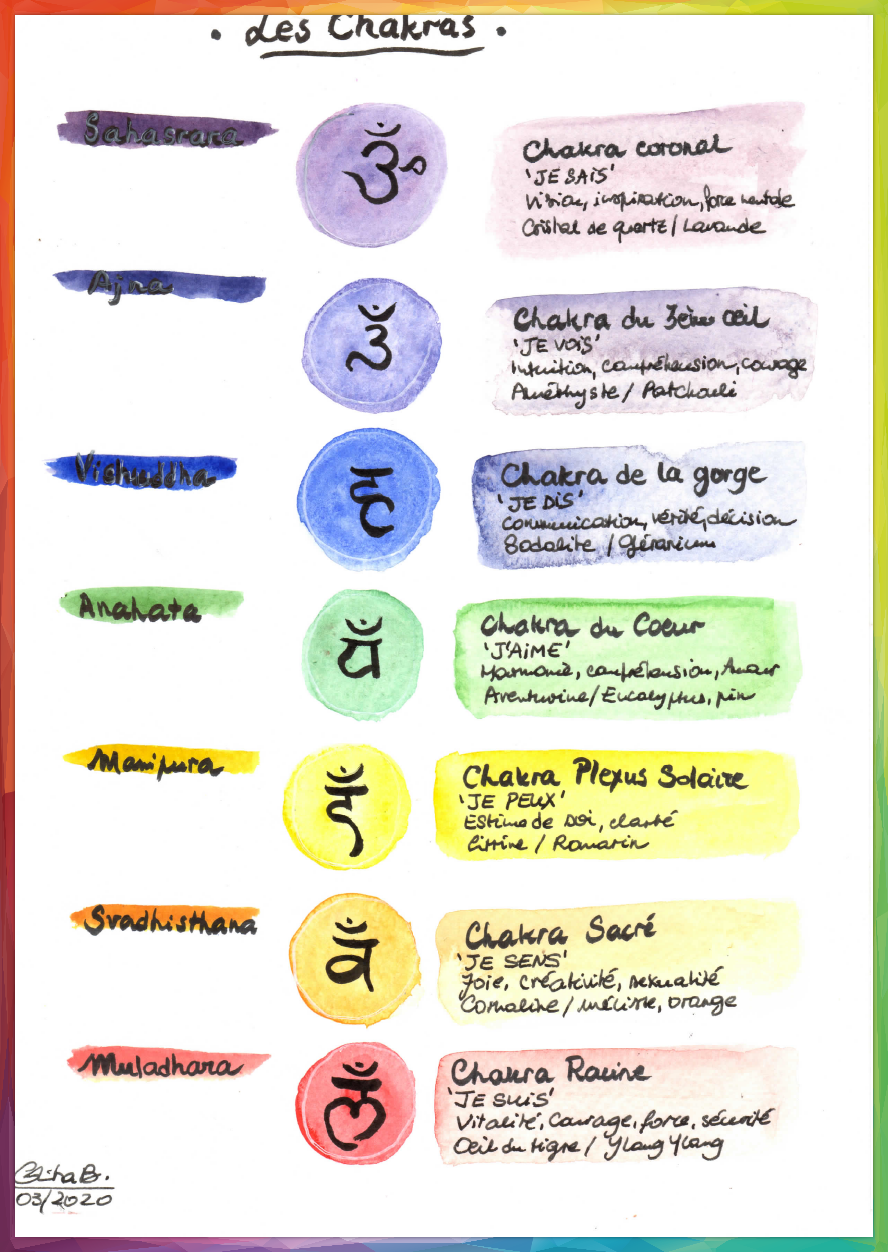 . Les Chakras .
Sahasrara
ॐ
Chakra coronal
'JE SAiS'
Vision, inspiration, force mentale
Cristal de quartz / Lavande
Ajna
Chakra du 3ème œil
'JE VOiS'
Intuition, compréhension, courage
Améthyste / Patchouli
Vishuddha
Chakra de la gorge
'JE DiS'
Communication, vérité, décision
Sodalite / Géranium
Anahata
Chakra du Coeur
'J'AiME'
Harmonie, compréhension, Amour
Aventurine / Eucalyptus, pin
Manipura
Chakra Plexus Solaire
'JE PEUX'
Estime de soi, clarté
Citrine / Romarin
Svadhisthana
Chakra Sacré
'JE SENS'
Joie, créativité, sexualité
Cornaline / mélisse, orange
Muladhara
Chakra Racine
'JE SUiS'
Vitalité, Courage, force, sécurité
Oeil du tigre / Ylang Ylang
03/2020